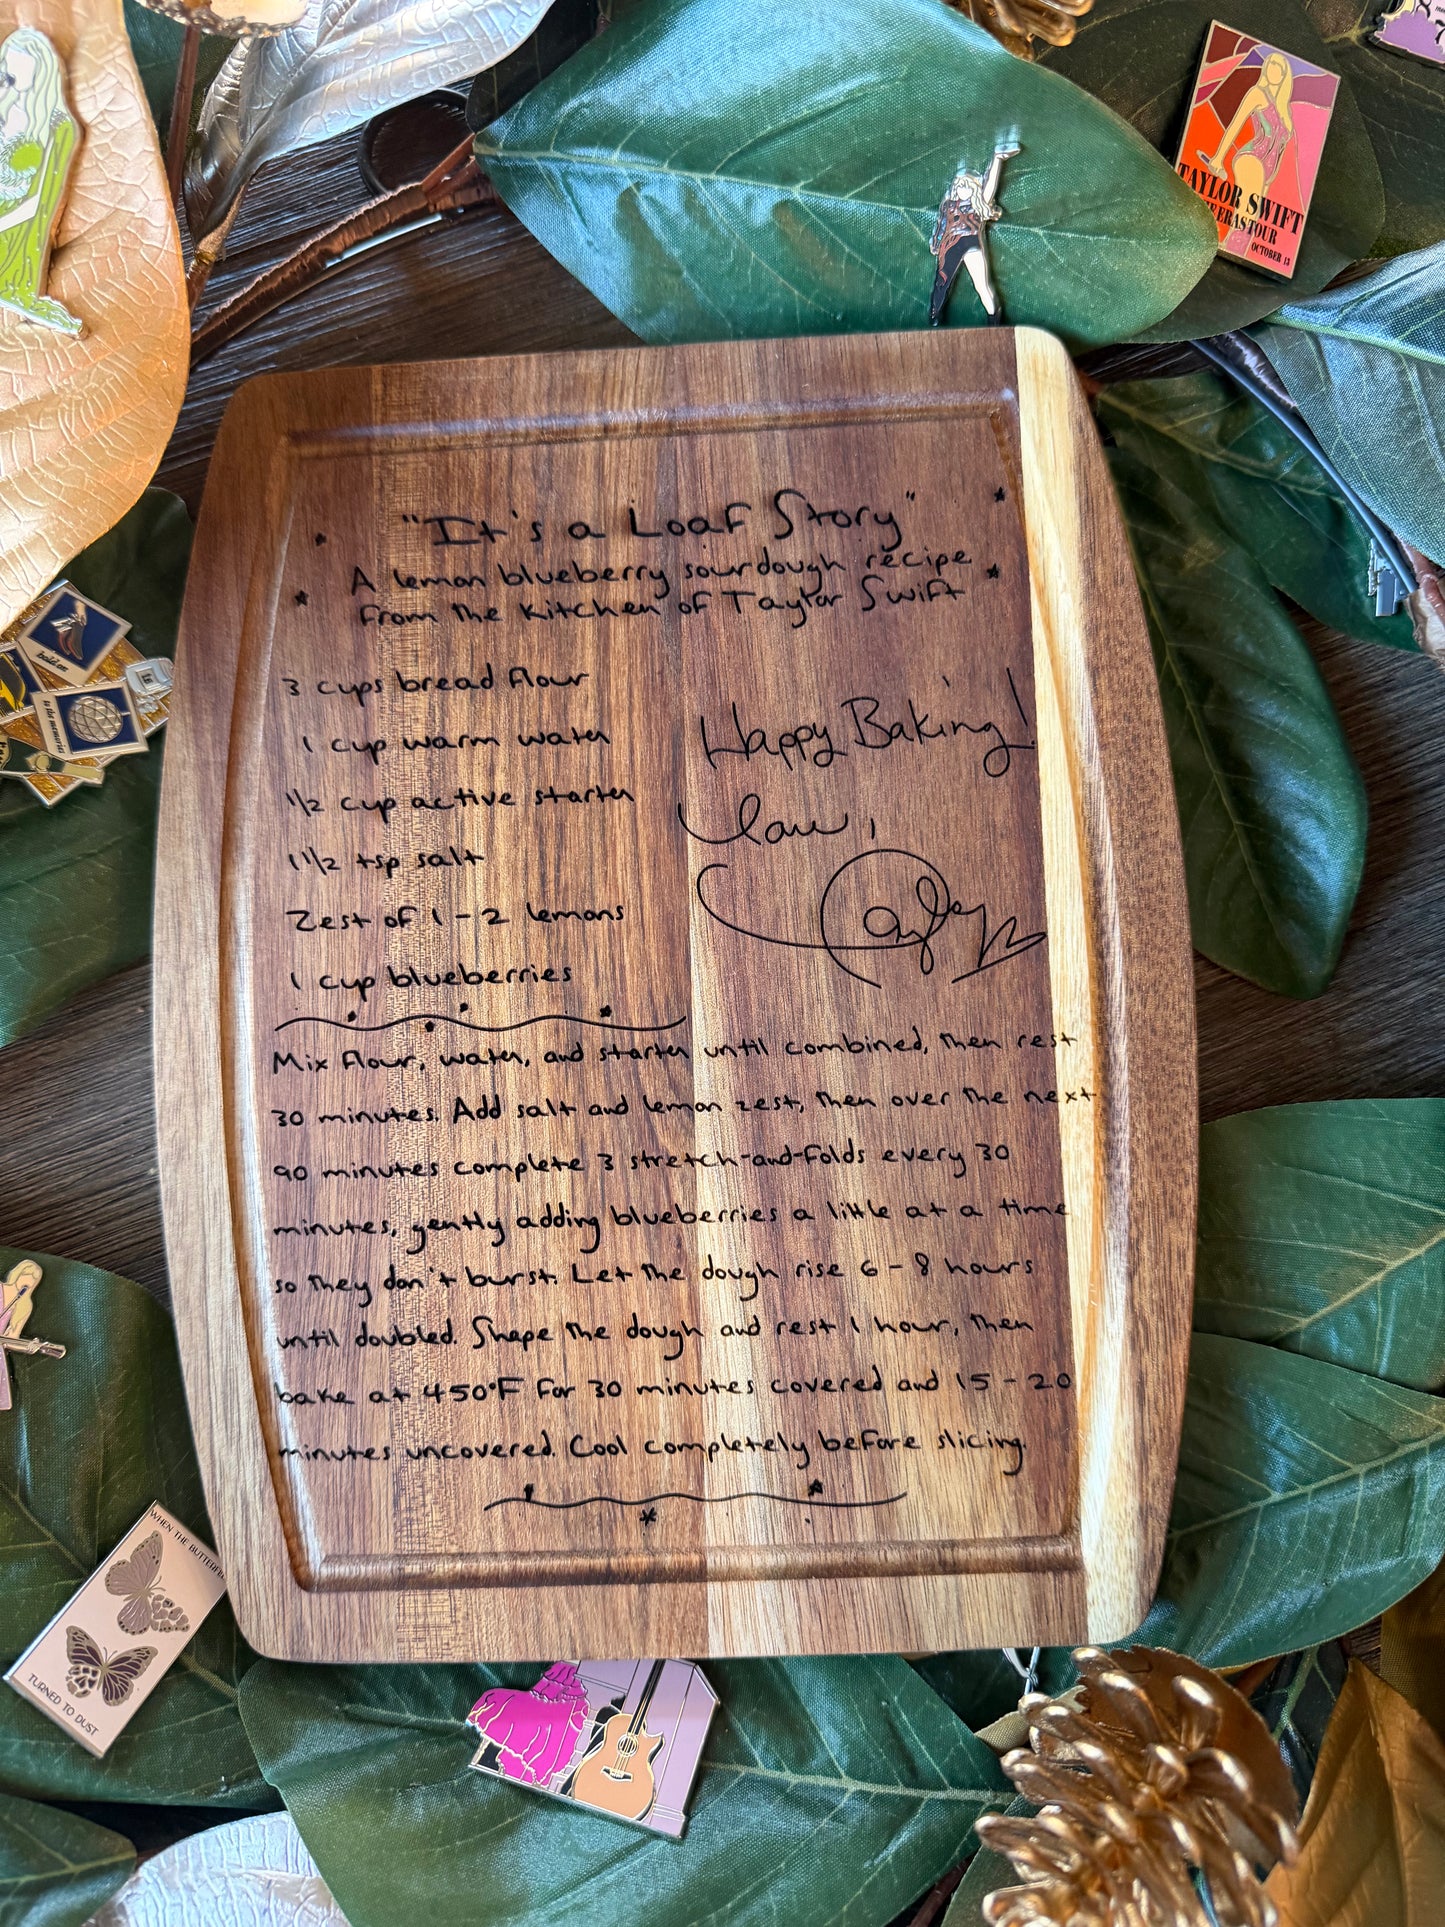 TAYLOR SWIFT
THE ERAS TOUR
OCTOBER 13
"It's a Loaf Story"
A lemon blueberry sourdough recipe
from the kitchen of Taylor Swift
3 cups bread flour
1 cup warm water
1/2 cup active starter
1 1/2 tsp salt
Zest of 1 - 2 lemons
1 cup blueberries
Happy Baking!
Love,
Taylor
Mix flour, water, and starter until combined, then rest
30 minutes. Add salt and lemon zest, then over the next
90 minutes complete 3 stretch-and-folds every 30
minutes, gently adding blueberries a little at a time
so they don't burst. Let the dough rise 6 - 8 hours
until doubled. Shape the dough and rest 1 hour, then
bake at 450°F for 30 minutes covered and 15 - 20
minutes uncovered. Cool completely before slicing.
hold on
to the memories
WHEN THE BUTTERFLI
TURNED TO DUST